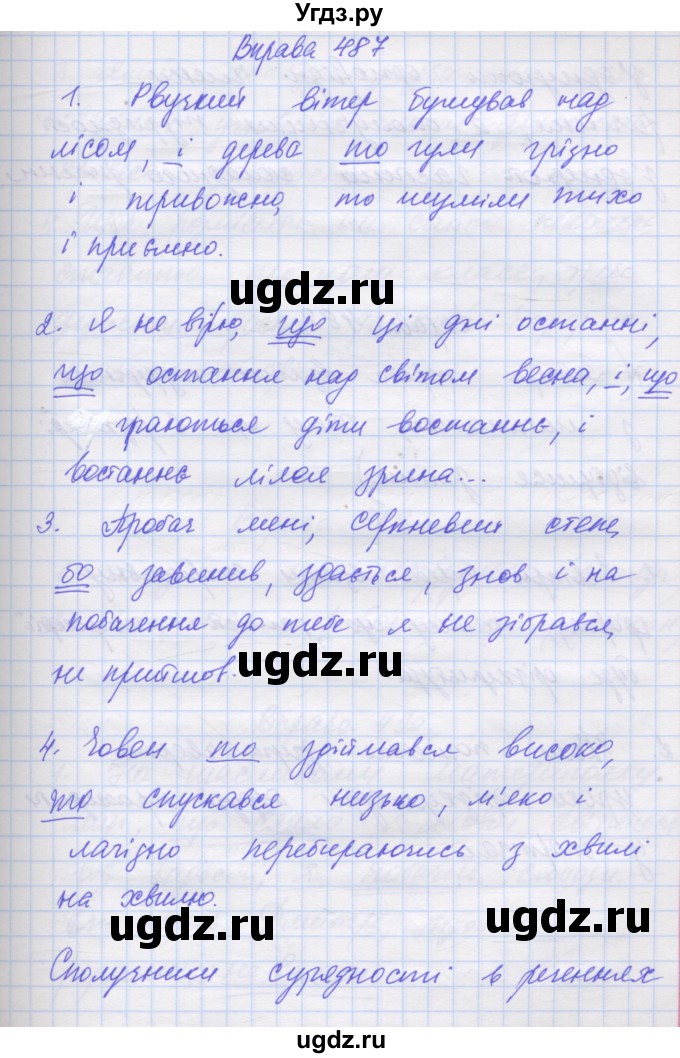 Угдз.ру
Вправа 487
1. Рвучкий вітер бушував над
лісом, і дерева то гули грізно
і тривожно, то шуміли тихо
і приємно.
ugdz.ru
2. Я не вірю, що ці дні останні,
що остання над світом весна, і, що
граються діти востаннє, і
востаннє мілая зрина...
ugdz.ru
3. Пробач мені, серпневий степ,
бо завинив, здається, знов і на
побачення до тебе я не зібрався,
не прийшов.
ugdz.ru
4. Човен то здіймався високо,
то спускався низько, м'яко і
лагідно перебираючись з хвилі
на хвилю.
ugdz.ru
Сполучники сурядності в реченнях
ugdz.ru